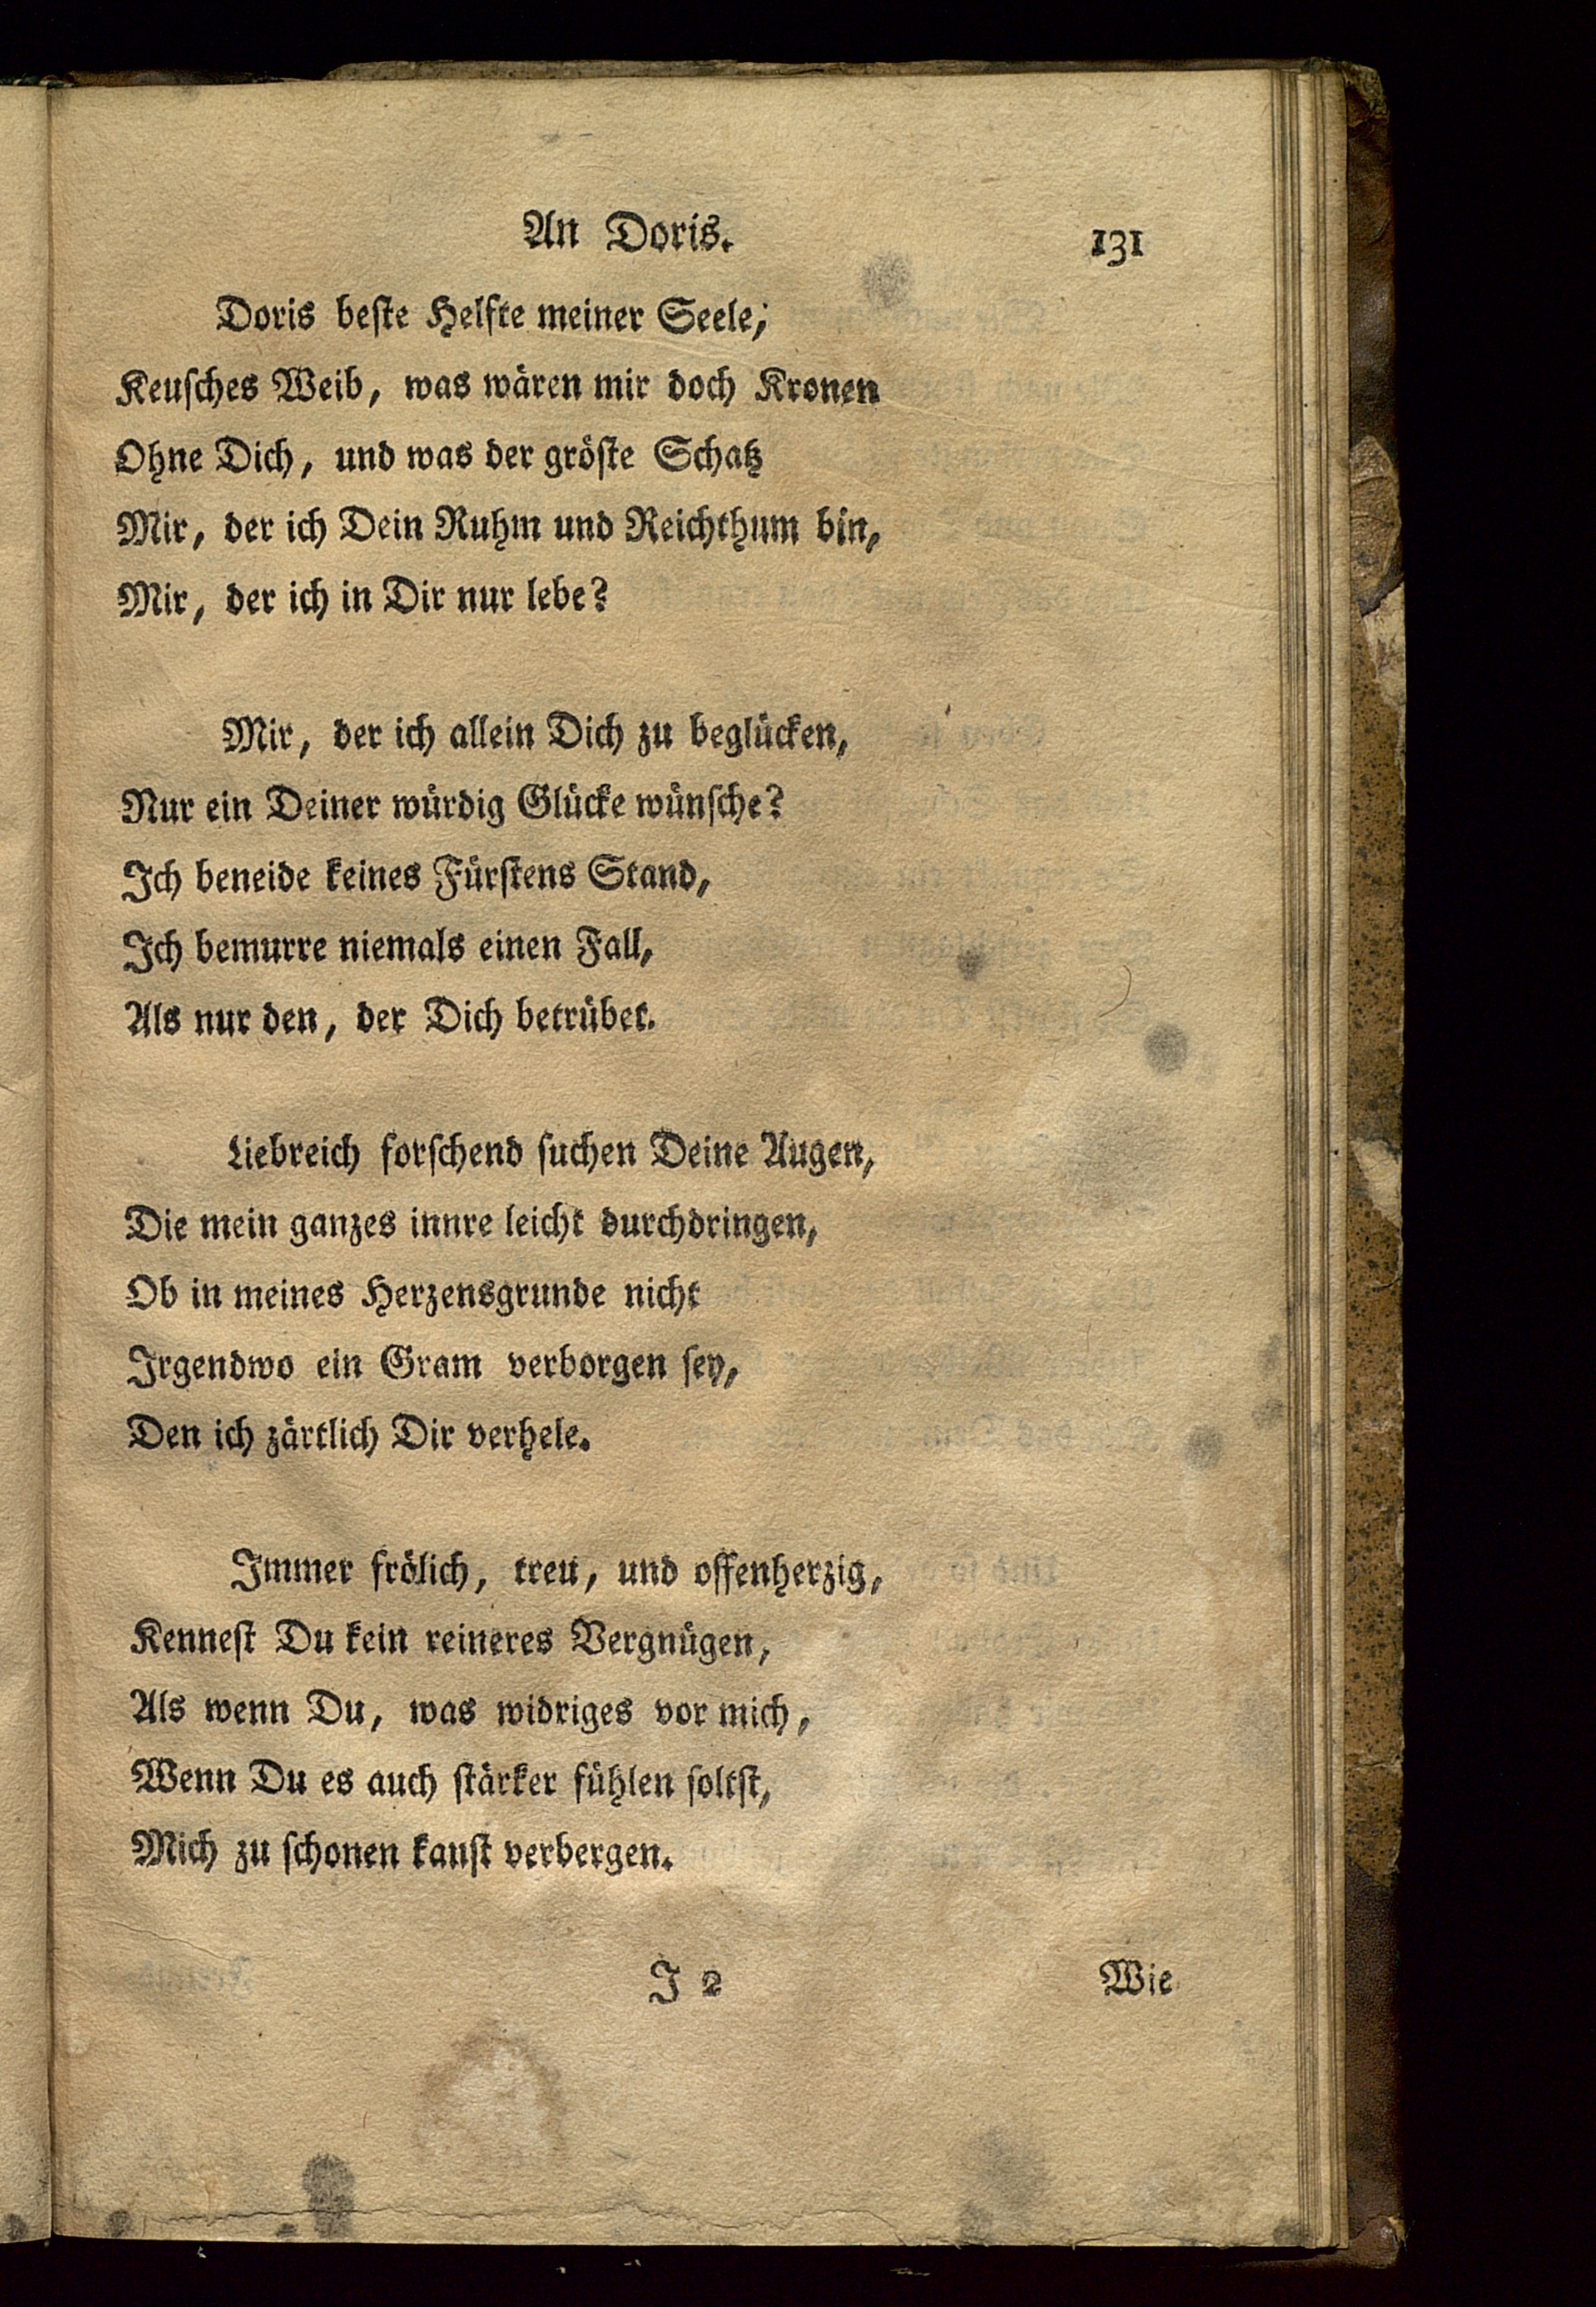 An Doris. 131
Doris beste Helfte meiner Seele;
Keusches Weib, was wären mir doch Kronen
Ohne Dich, und was der gröste Schatz
Mir, der ich Dein Ruhm und Reichthum bin,
Mir, der ich in Dir nur lebe?
Mir, der ich allein Dich zu beglücken,
Nur ein Deiner würdig Glücke wünsche?
Ich beneide keines Fürstens Stand,
Ich bemurre niemals einen Fall,
Als nur den, der Dich betrübet.
Liebreich forschend suchen Deine Augen,
Die mein ganzes innre leicht durchdringen,
Ob in meines Herzensgrunde nicht
Irgendwo ein Gram verborgen sey,
Den ich zärtlich Dir verhele.
Immer frölich, treu, und offenherzig,
Kennest Du kein reineres Vergnügen,
Als wenn Du, was widriges vor mich,
Wenn Du es auch stärker fühlen soltst,
Mich zu schonen kanst verbergen.
J 2 Wie